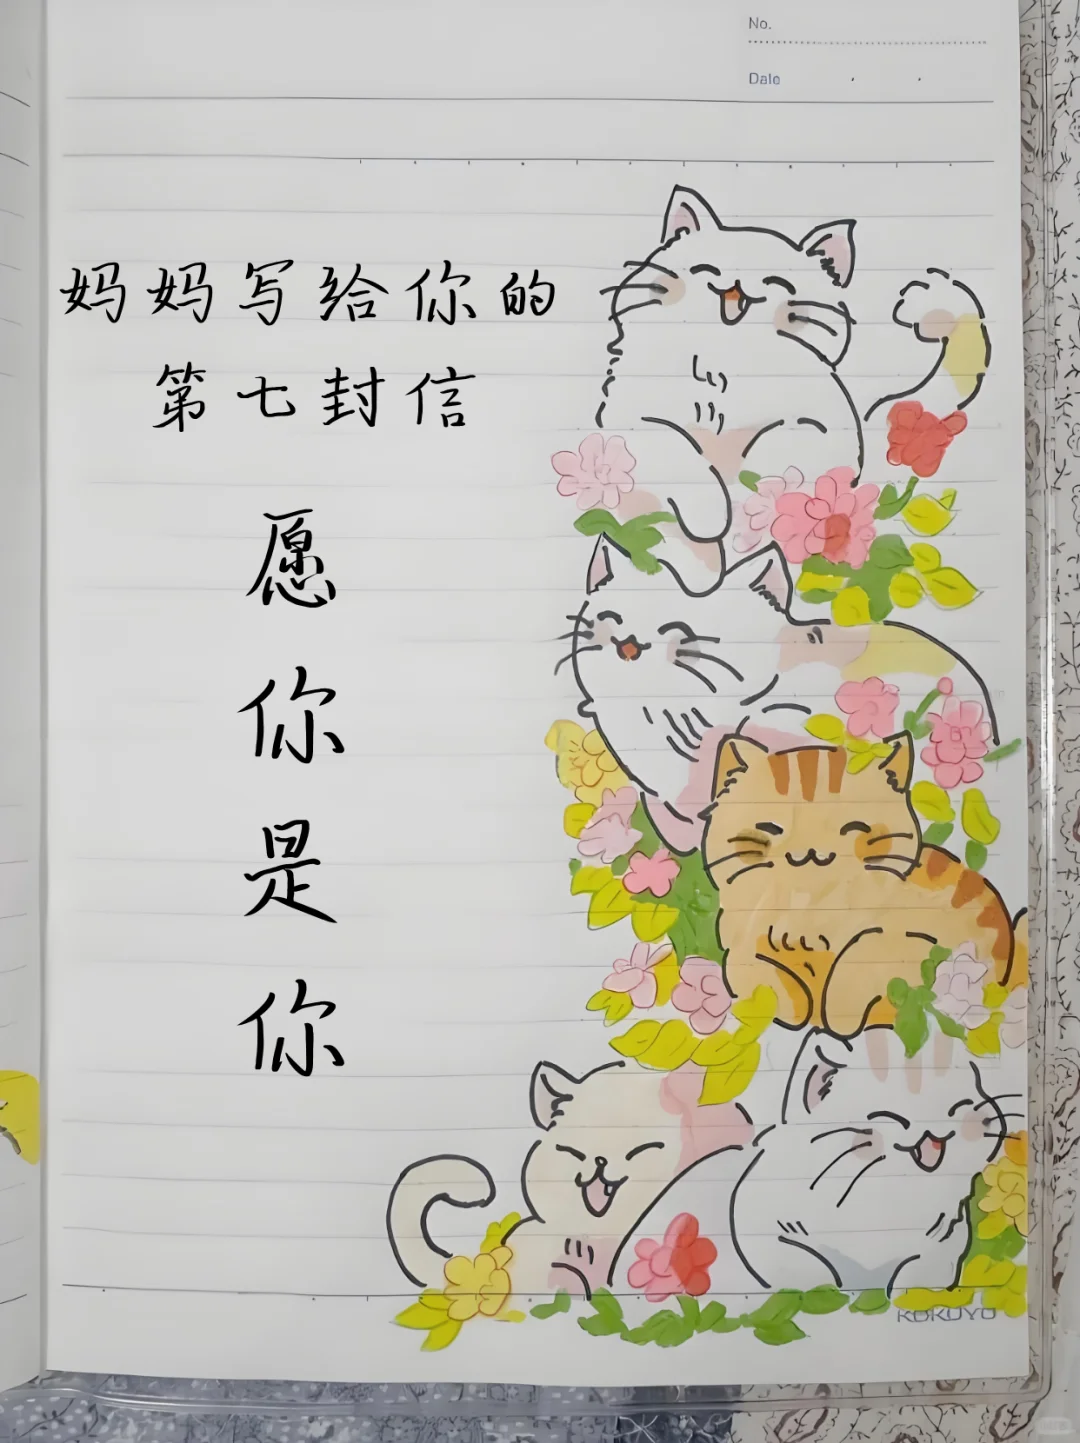 No.
Date
妈妈写给你的
第七封信
愿
你
是
你
KOKUYO